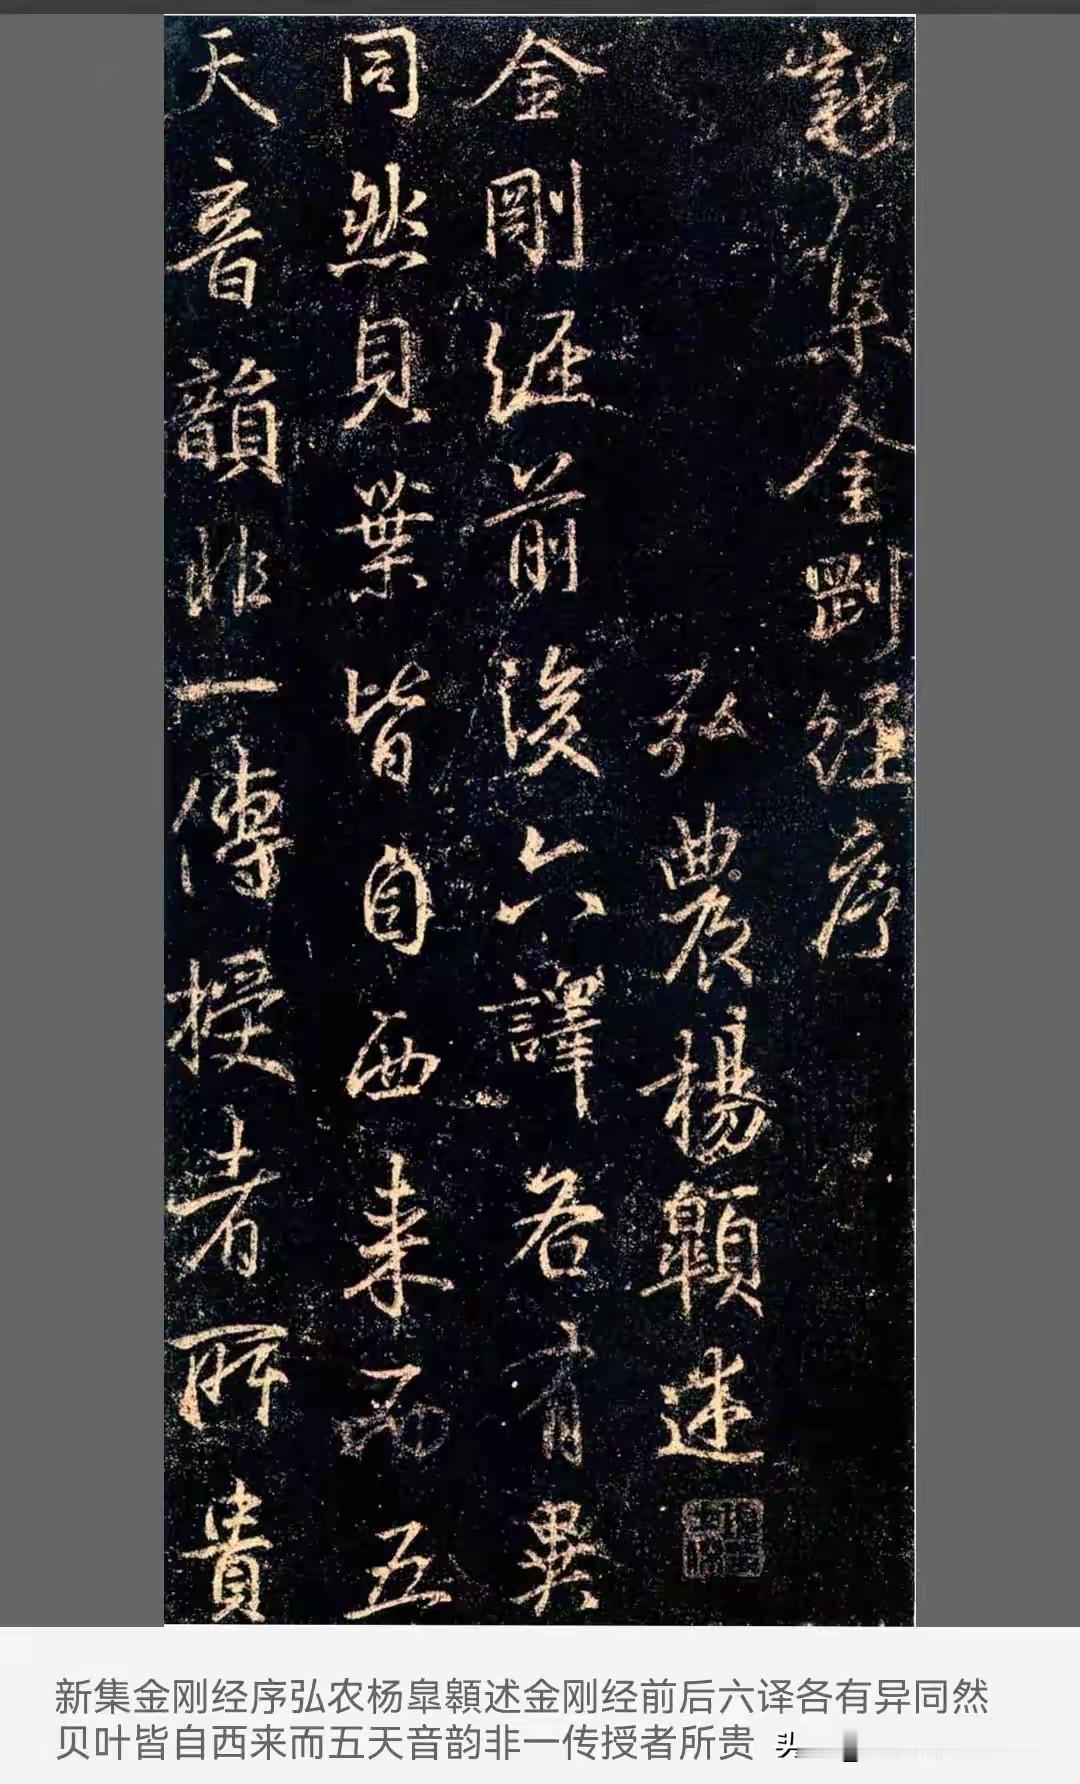 新集金剛經序
弘農楊翱述
金剛經前後六譯各有異
同然貝葉皆自西来而五
天音韻非一傳授者所貴
新集金刚经序弘农杨皐顡述金刚经前后六译各有异同然
贝叶皆自西来而五天音韵非一传授者所贵